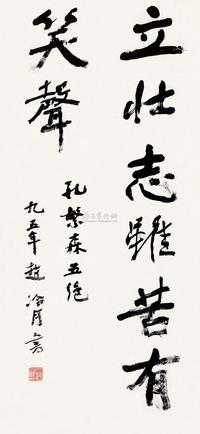 立壮志雖苦有
笑聲
孔繁森五绝
九五年趙冷月書